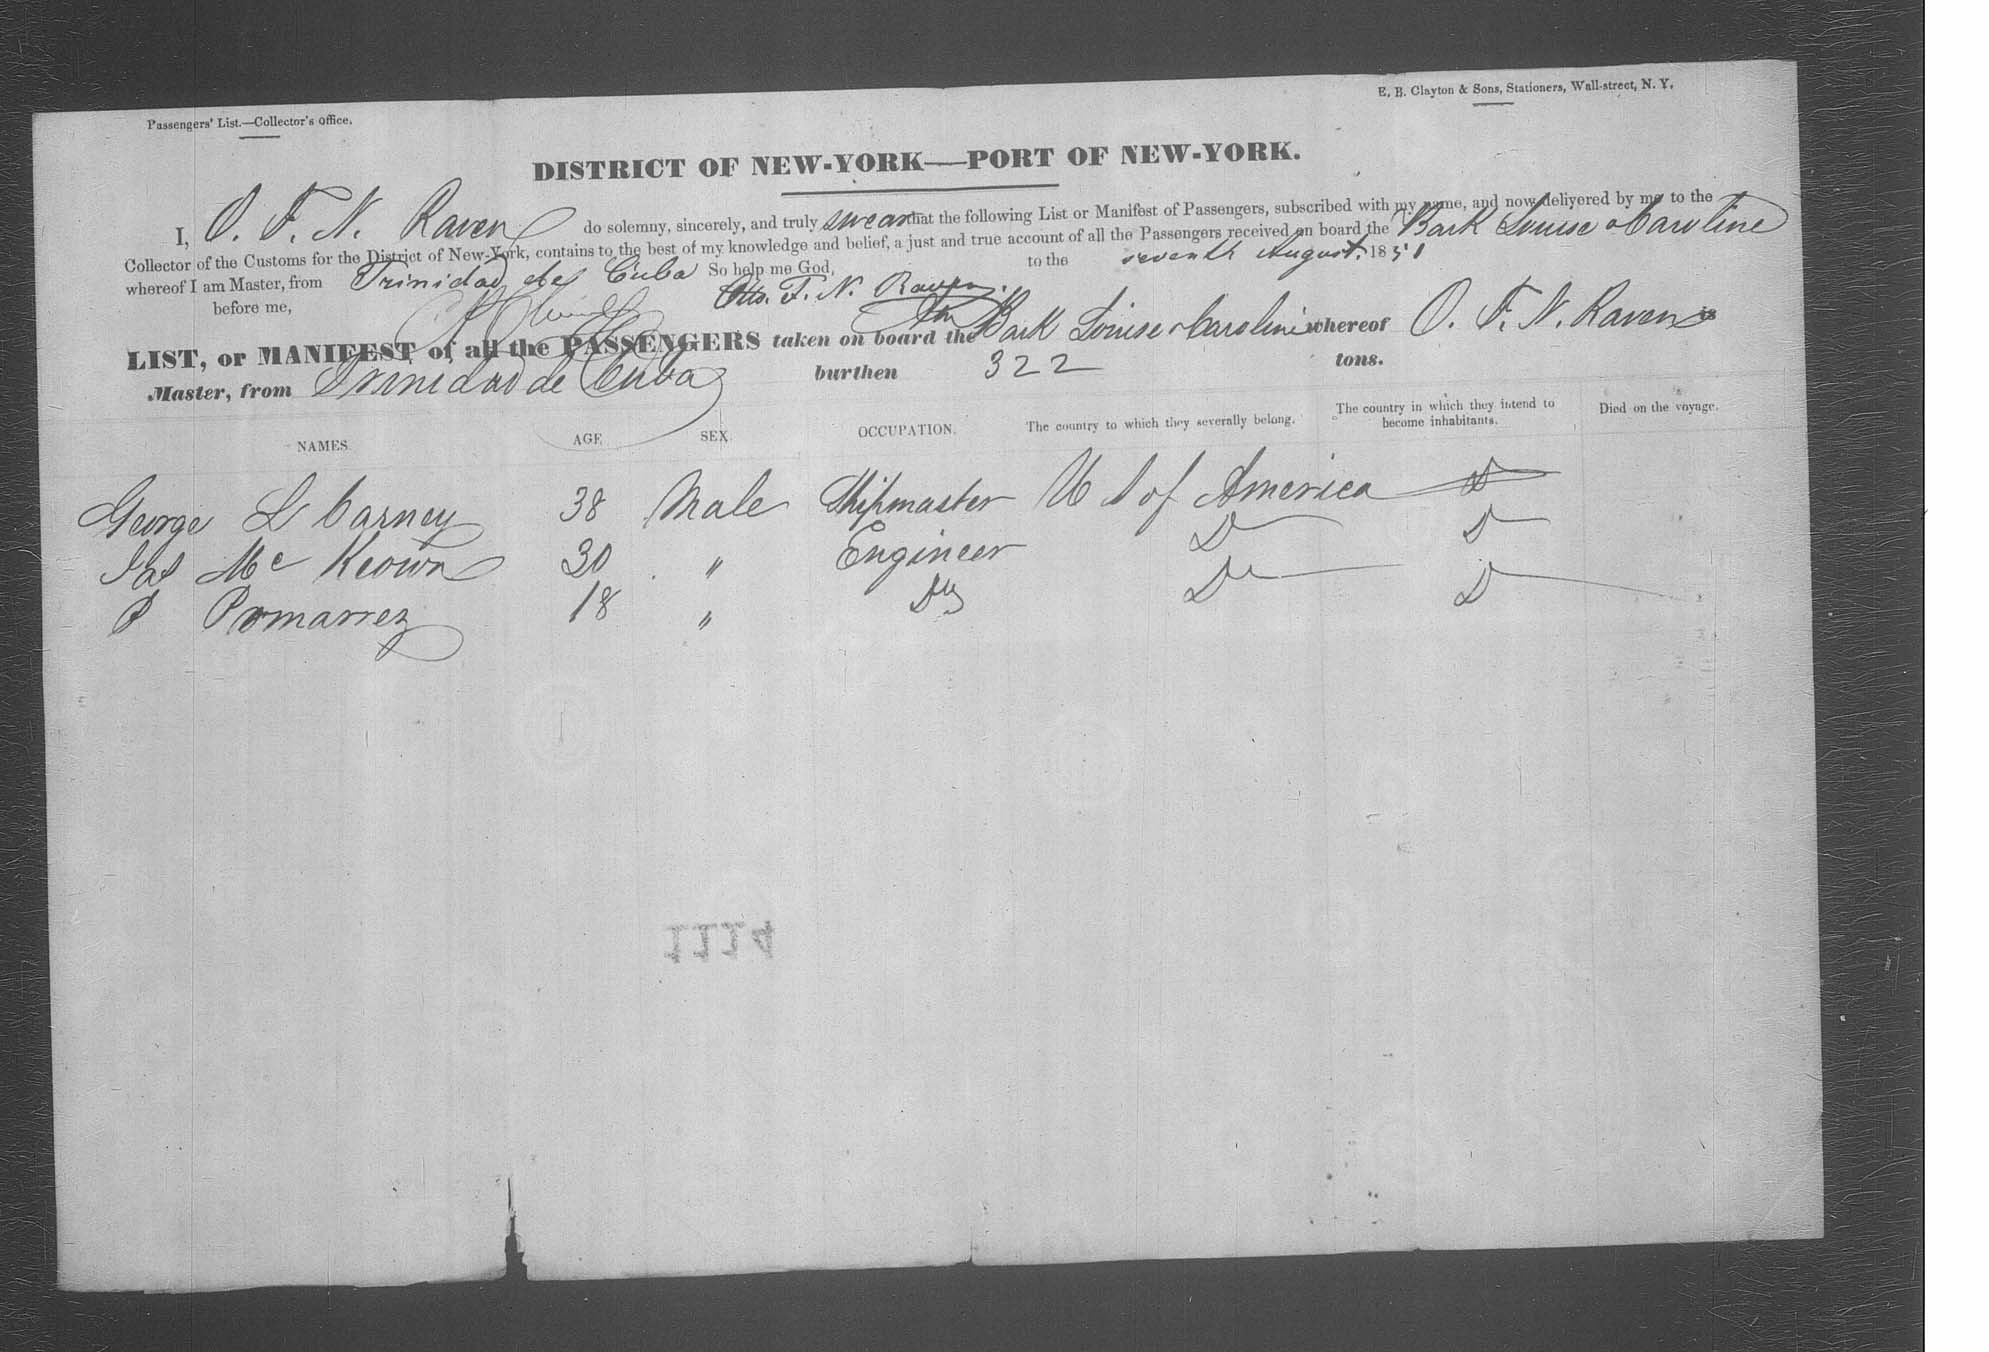 Passengers' List.—Collector's office.
E. B. Clayton & Sons, Stationers, Wall-street, N. Y.
DISTRICT OF NEW-YORK—PORT OF NEW-YORK.
I, O. F. N. Raven do solemny, sincerely, and truly swear that the following List or Manifest of Passengers, subscribed with my name, and now delivered by me to the
Collector of the Customs for the District of New-York, contains to the best of my knowledge and belief, a just and true account of all the Passengers received on board the Bark Louise Caroline
whereof I am Master, from Trinidad de Cuba So help me God, to the seventh August. 1851
before me, Otto. F. N. Raven.
LIST, or MANIFEST of all the PASSENGERS taken on board the Bark Louise Caroline whereof O. F. N. Raven is
Master, from Trinidad de Cuba burthen 322 tons.
NAMES. AGE SEX. OCCUPATION. The country to which they severally belong. The country in which they intend to become inhabitants. Died on the voyage.
George L Carney 38 Male Shipmaster U S of America D
Jas Mc Keown 30 " Engineer D D
P Pomarrez 18 " Do Do D
1114